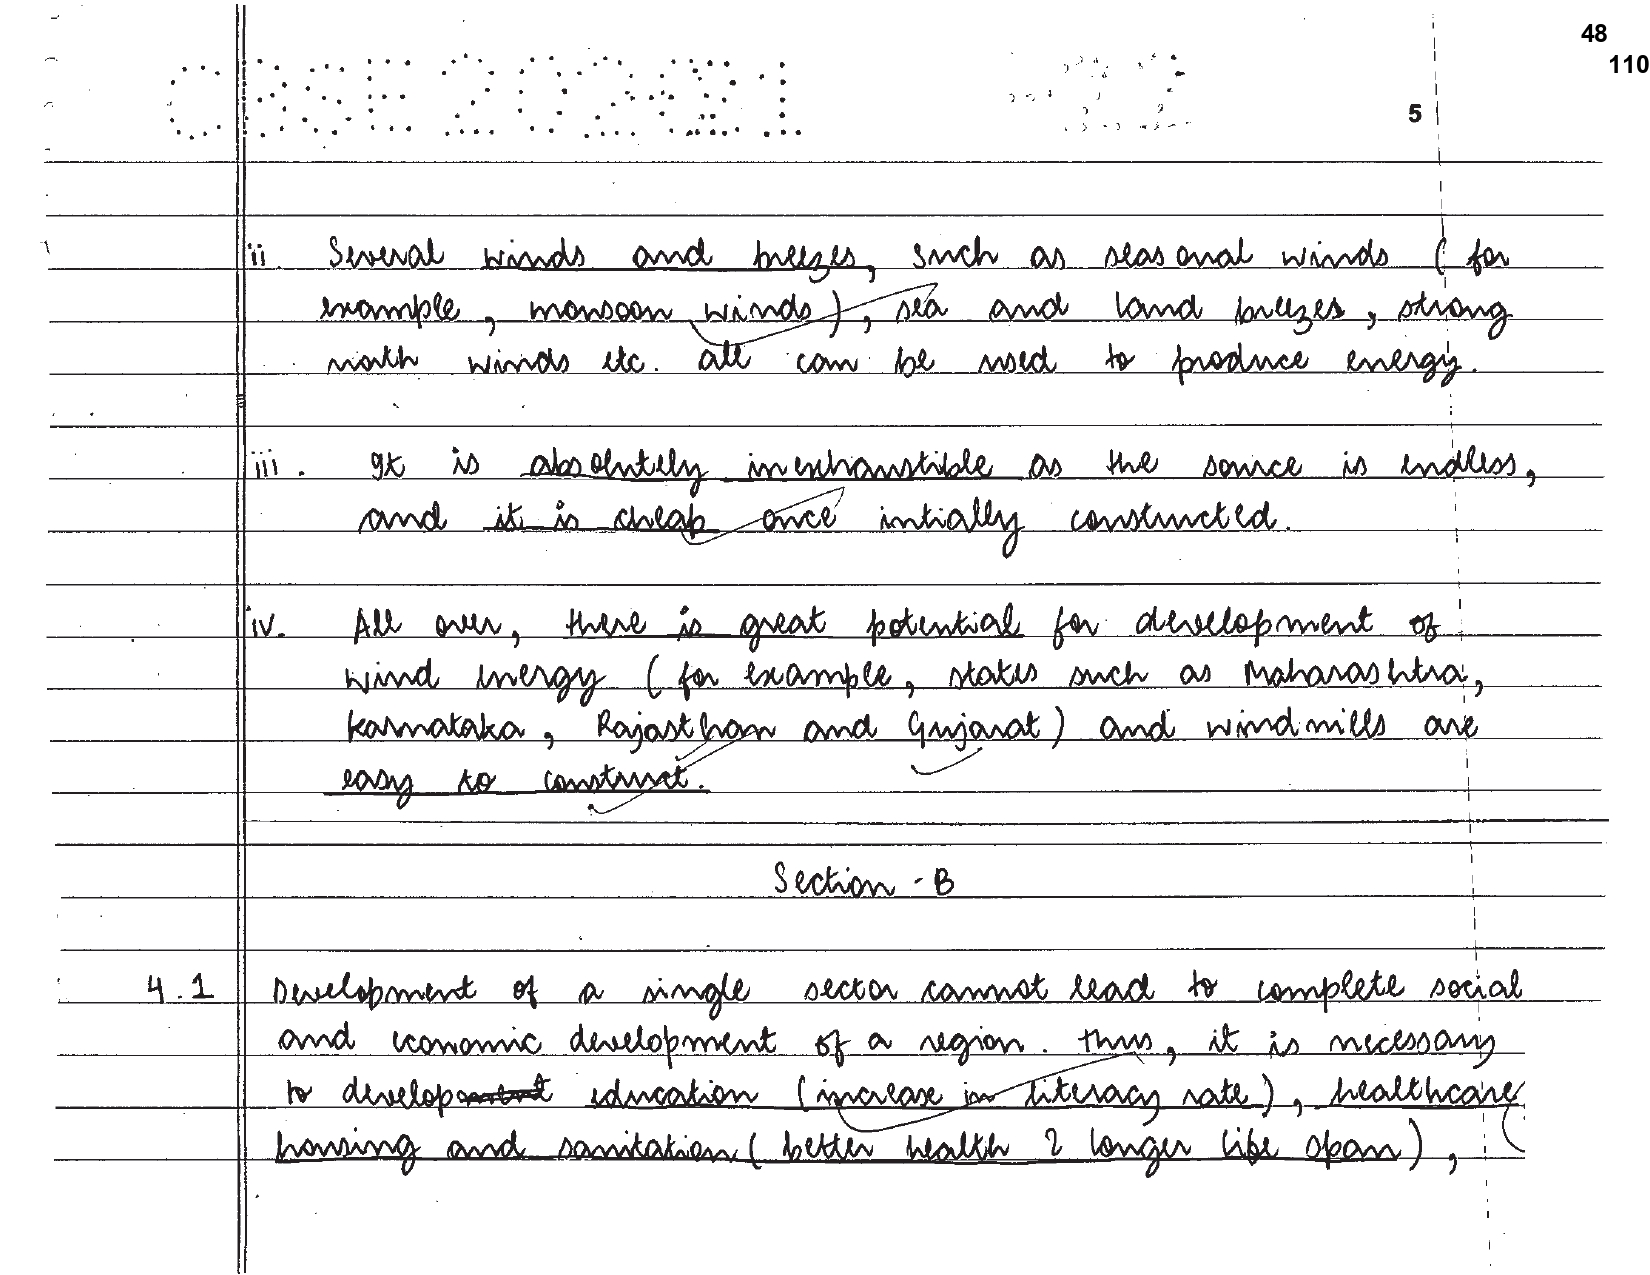 48
110
CBSE 2021-22
5
ii. Several winds and breezes, such as seasonal winds (for
example, monsoon winds), sea and land breezes, strong
north winds etc. all can be used to produce energy.
iii. It is absolutely inexhaustible as the source is endless,
and it is cheap once intially constructed.
iv. All over, there is great potential for development of
wind energy (for example, states such as Maharashtra,
Karnataka, Rajasthan and Gujarat) and windmills are
easy to construct.
Section - B
4.1 Development of a single sector cannot lead to complete social
and economic development of a region. Thus, it is necessary
to develop education (increase in literacy rate), healthcare
housing and sanitation (better health & longer life span),